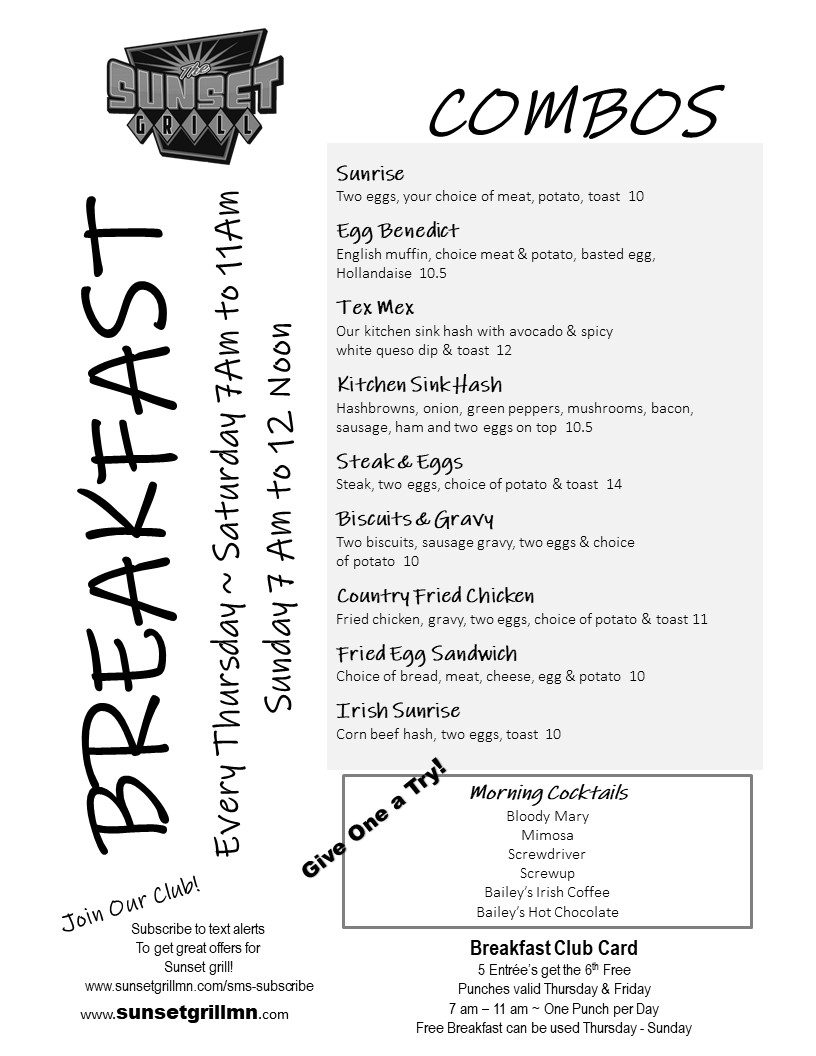 The
SUNSET
GRILL
BREAKFAST
Every Thursday ~ Saturday 7Am to 11Am
Sunday 7 Am to 12 Noon
COMBOS
Sunrise
Two eggs, your choice of meat, potato, toast 10
Egg Benedict
English muffin, choice meat & potato, basted egg,
Hollandaise 10.5
Tex Mex
Our kitchen sink hash with avocado & spicy
white queso dip & toast 12
Kitchen Sink Hash
Hashbrowns, onion, green peppers, mushrooms, bacon,
sausage, ham and two eggs on top 10.5
Steak & Eggs
Steak, two eggs, choice of potato & toast 14
Biscuits & Gravy
Two biscuits, sausage gravy, two eggs & choice
of potato 10
Country Fried Chicken
Fried chicken, gravy, two eggs, choice of potato & toast 11
Fried Egg Sandwich
Choice of bread, meat, cheese, egg & potato 10
Irish Sunrise
Corn beef hash, two eggs, toast 10
Give One a Try!
Morning Cocktails
Bloody Mary
Mimosa
Screwdriver
Screwup
Bailey's Irish Coffee
Bailey's Hot Chocolate
Join Our Club!
Subscribe to text alerts
To get great offers for
Sunset grill!
www.sunsetgrillmn.com/sms-subscribe
www.sunsetgrillmn.com
Breakfast Club Card
5 Entrée's get the 6th Free
Punches valid Thursday & Friday
7 am – 11 am ~ One Punch per Day
Free Breakfast can be used Thursday - Sunday